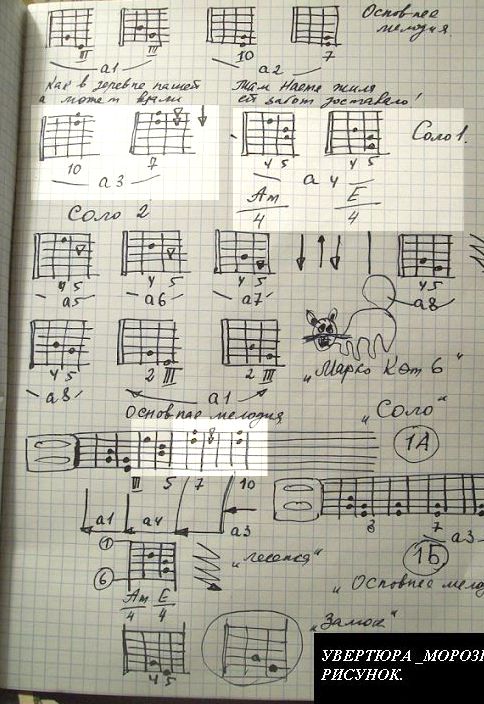 Основнее
мелодия.
III III 10 7
a1 a2
Как в деревне нашей
а может врали
Там Настя жила
ей забот доставало!
10 7 4 5 4 5
Соло 1.
a3 a4
Am E
4 4
Соло 2
4 5 4 5 4 5 4 5
a5 a6 a7 a8
4 5 2 III 2 III
a8 a1
„Марко Кот 6“
Основнее мелодия
„Соло“
1А
III 5 7 10
a1 a4 a3
3 7
a3
1Б
1
6
Am E
4 4
„Основнее мело
„Замок“
4 5
a
УВЕРТЮРА _МОРОЗК
РИСУНОК.